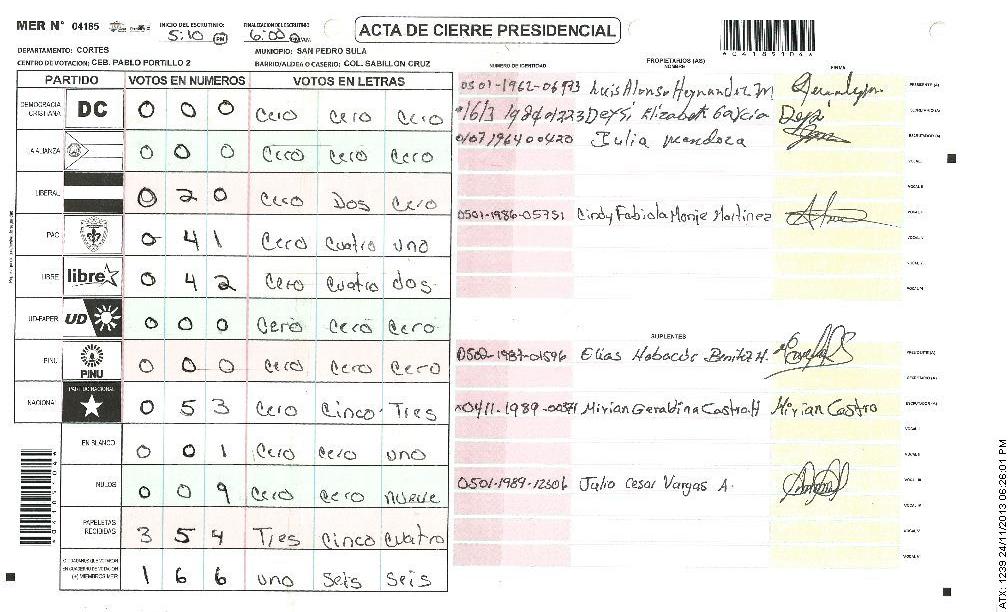 MER N° 04185 INICIO DEL ESCRUTINIO: 5:10 PM FINALIZACION DEL ESCRUTINIO 6:00 ACTA DE CIERRE PRESIDENCIAL
*0418510 4*
DEPARTAMENTO: CORTES MUNICIPIO: SAN PEDRO SULA
CENTRO DE VOTACION: CEB. PABLO PORTILLO 2 BARRIO/ALDEA O CASERIO: COL. SABILLON CRUZ
NUMERO DE IDENTIDAD PROPIETARIOS (AS) NOMBRE FIRMA
PARTIDO VOTOS EN NUMEROS VOTOS EN LETRAS
DEMOCRACIA CRISTIANA DC 0 0 0 Cero Cero Cero
ALIANZA 0 0 0 Cero Cero Cero
LIBERAL 0 2 0 Cero Dos Cero
PAC 0 4 1 Cero Cuatro uno
LIBRE libre 0 4 2 Cero Cuatro dos
UD-FAPER UD 0 0 0 Cero Cero Cero
PINU PINU 0 0 0 Cero Cero Cero
NACIONAL PARTIDO NACIONAL 0 5 3 Cero Cinco Tres
EN BLANCO 0 0 1 Cero Cero uno
NULOS 0 0 9 Cero Cero nueve
PAPELETAS RECIBIDAS 3 5 4 Tres Cinco Cuatro
CIUDADANOS QUE VOTARON EN CUADERNO DE VOTACION (+) MIEMBROS MER 1 6 6 uno Seis Seis
0501-1962-06973 Luis Alonso Hernandez M PRESIDENTE (A)
Deysi Elizabeth Garcia Deysi SECRETARIO (A)
0107196400420 Julia Mendoza ESCRUTADOR (A)
VOCAL I
VOCAL II
0501-1986-05751 Cindy Fabiola Monje Martinez
VOCAL IV
VOCAL V
VOCAL VI
SUPLENTES
0502-1987-01596 Elias Habacuc Benitez H. PRESIDENTE (A)
SECRETARIO (A)
0411-1989-00371 Mirian Geraldina Castro H Mirian Castro ESCRUTADOR (A)
VOCAL I
VOCAL II
0501-1989-12606 Julio Cesar Vargas A. VOCAL III
VOCAL IV
VOCAL V
VOCAL VI
ATX: 1239 24/11/2013 06:26:01 PM